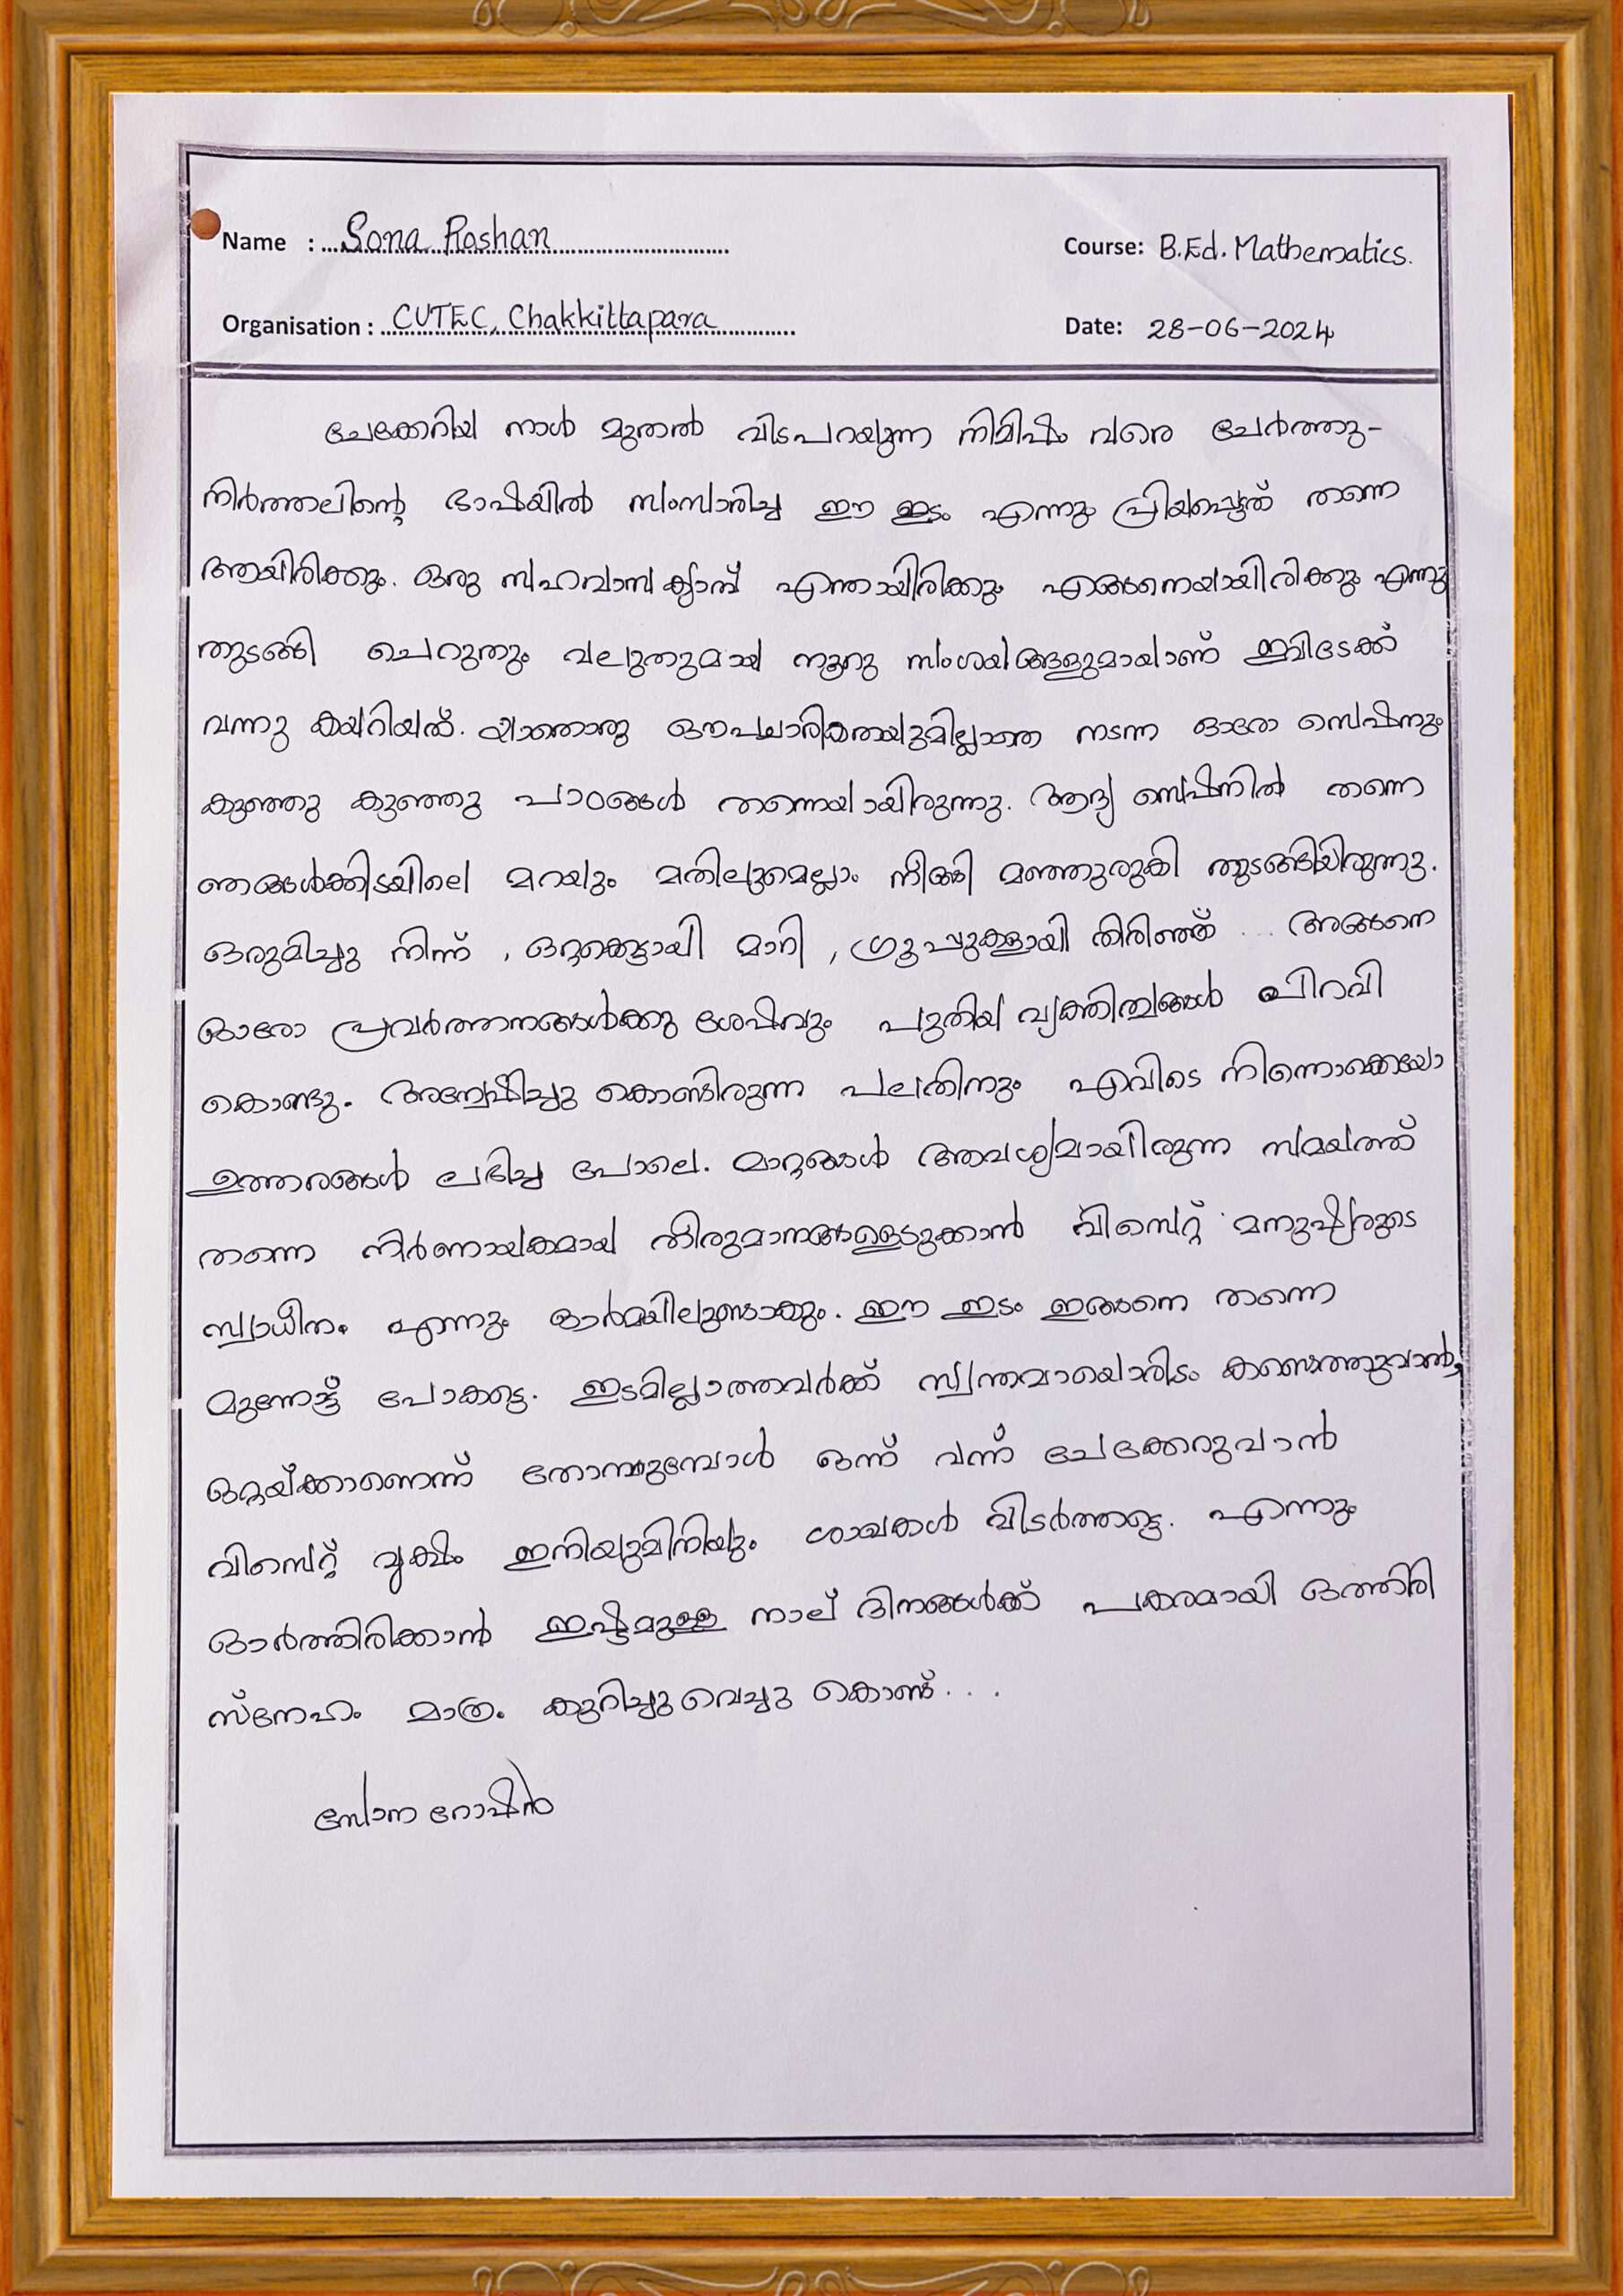 Name : Sona Roshan
Course: B.Ed. Mathematics.
Organisation : CUTEC, Chakkittapara
Date: 28-06-2024
ചേക്കേറിയ നാൾ മുതൽ വിടപറയുന്ന നിമിഷം വരെ ചേർത്തു-
നിർത്തലിന്റെ ഭാഷയിൽ സംസാരിച്ച ഈ ഇടം എന്നും പ്രിയപ്പെട്ടത് തന്നെ
ആയിരിക്കും. ഒരു സഹവാസ ക്യാമ്പ് എന്തായിരിക്കും എങ്ങനെയായിരിക്കും എന്നു
തുടങ്ങി ചെറുതും വലുതുമായ നൂറു സംശയങ്ങളുമായാണ് ഇവിടേക്ക്
വന്നു കയറിയത്. യാതൊരു ഔപചാരികതയുമില്ലാതെ നടന്ന ഓരോ സെഷനും
കുഞ്ഞു കുഞ്ഞു പാഠങ്ങൾ തന്നെയായിരുന്നു. ആദ്യ സെഷനിൽ തന്നെ
ഞങ്ങൾക്കിടയിലെ മറയും മതിലുമെല്ലാം നീങ്ങി മഞ്ഞുരുകി തുടങ്ങിയിരുന്നു.
ഒരുമിച്ചു നിന്ന് , ഒറ്റക്കെട്ടായി മാറി , ഗ്രൂപ്പുകളായി തിരിഞ്ഞ് ... അങ്ങനെ
ഓരോ പ്രവർത്തനങ്ങൾക്കു ശേഷവും പുതിയ വ്യക്തിത്വങ്ങൾ പിറവി
കൊണ്ടു. അന്വേഷിച്ചു കൊണ്ടിരുന്ന പലതിനും എവിടെ നിന്നൊക്കെയോ
ഉത്തരങ്ങൾ ലഭിച്ച പോലെ. മാറ്റങ്ങൾ ആവശ്യമായിരുന്ന സമയത്ത്
തന്നെ നിർണായകമായ തീരുമാനങ്ങളെടുക്കാൻ വിസെറ്റ് മനുഷ്യരുടെ
സ്വാധീനം എന്നും ഓർമയിലുണ്ടാകും. ഈ ഇടം ഇങ്ങനെ തന്നെ
മുന്നോട്ട് പോകട്ടെ. ഇടമില്ലാത്തവർക്ക് സ്വന്തമായൊരിടം കണ്ടെത്തുവാൻ,
ഒറ്റയ്ക്കാണെന്ന് തോന്നുമ്പോൾ ഒന്ന് വന്ന് ചേക്കേറുവാൻ
വിസെറ്റ് വൃക്ഷം ഇനിയുമിനിയും ശാഖകൾ വിടർത്തട്ടെ. എന്നും
ഓർത്തിരിക്കാൻ ഇഷ്ടമുള്ള നാല് ദിനങ്ങൾക്ക് പകരമായി ഒത്തിരി
സ്നേഹം മാത്രം കുറിച്ചു വെച്ചു കൊണ്ട്. . .
സോന റോഷൻ